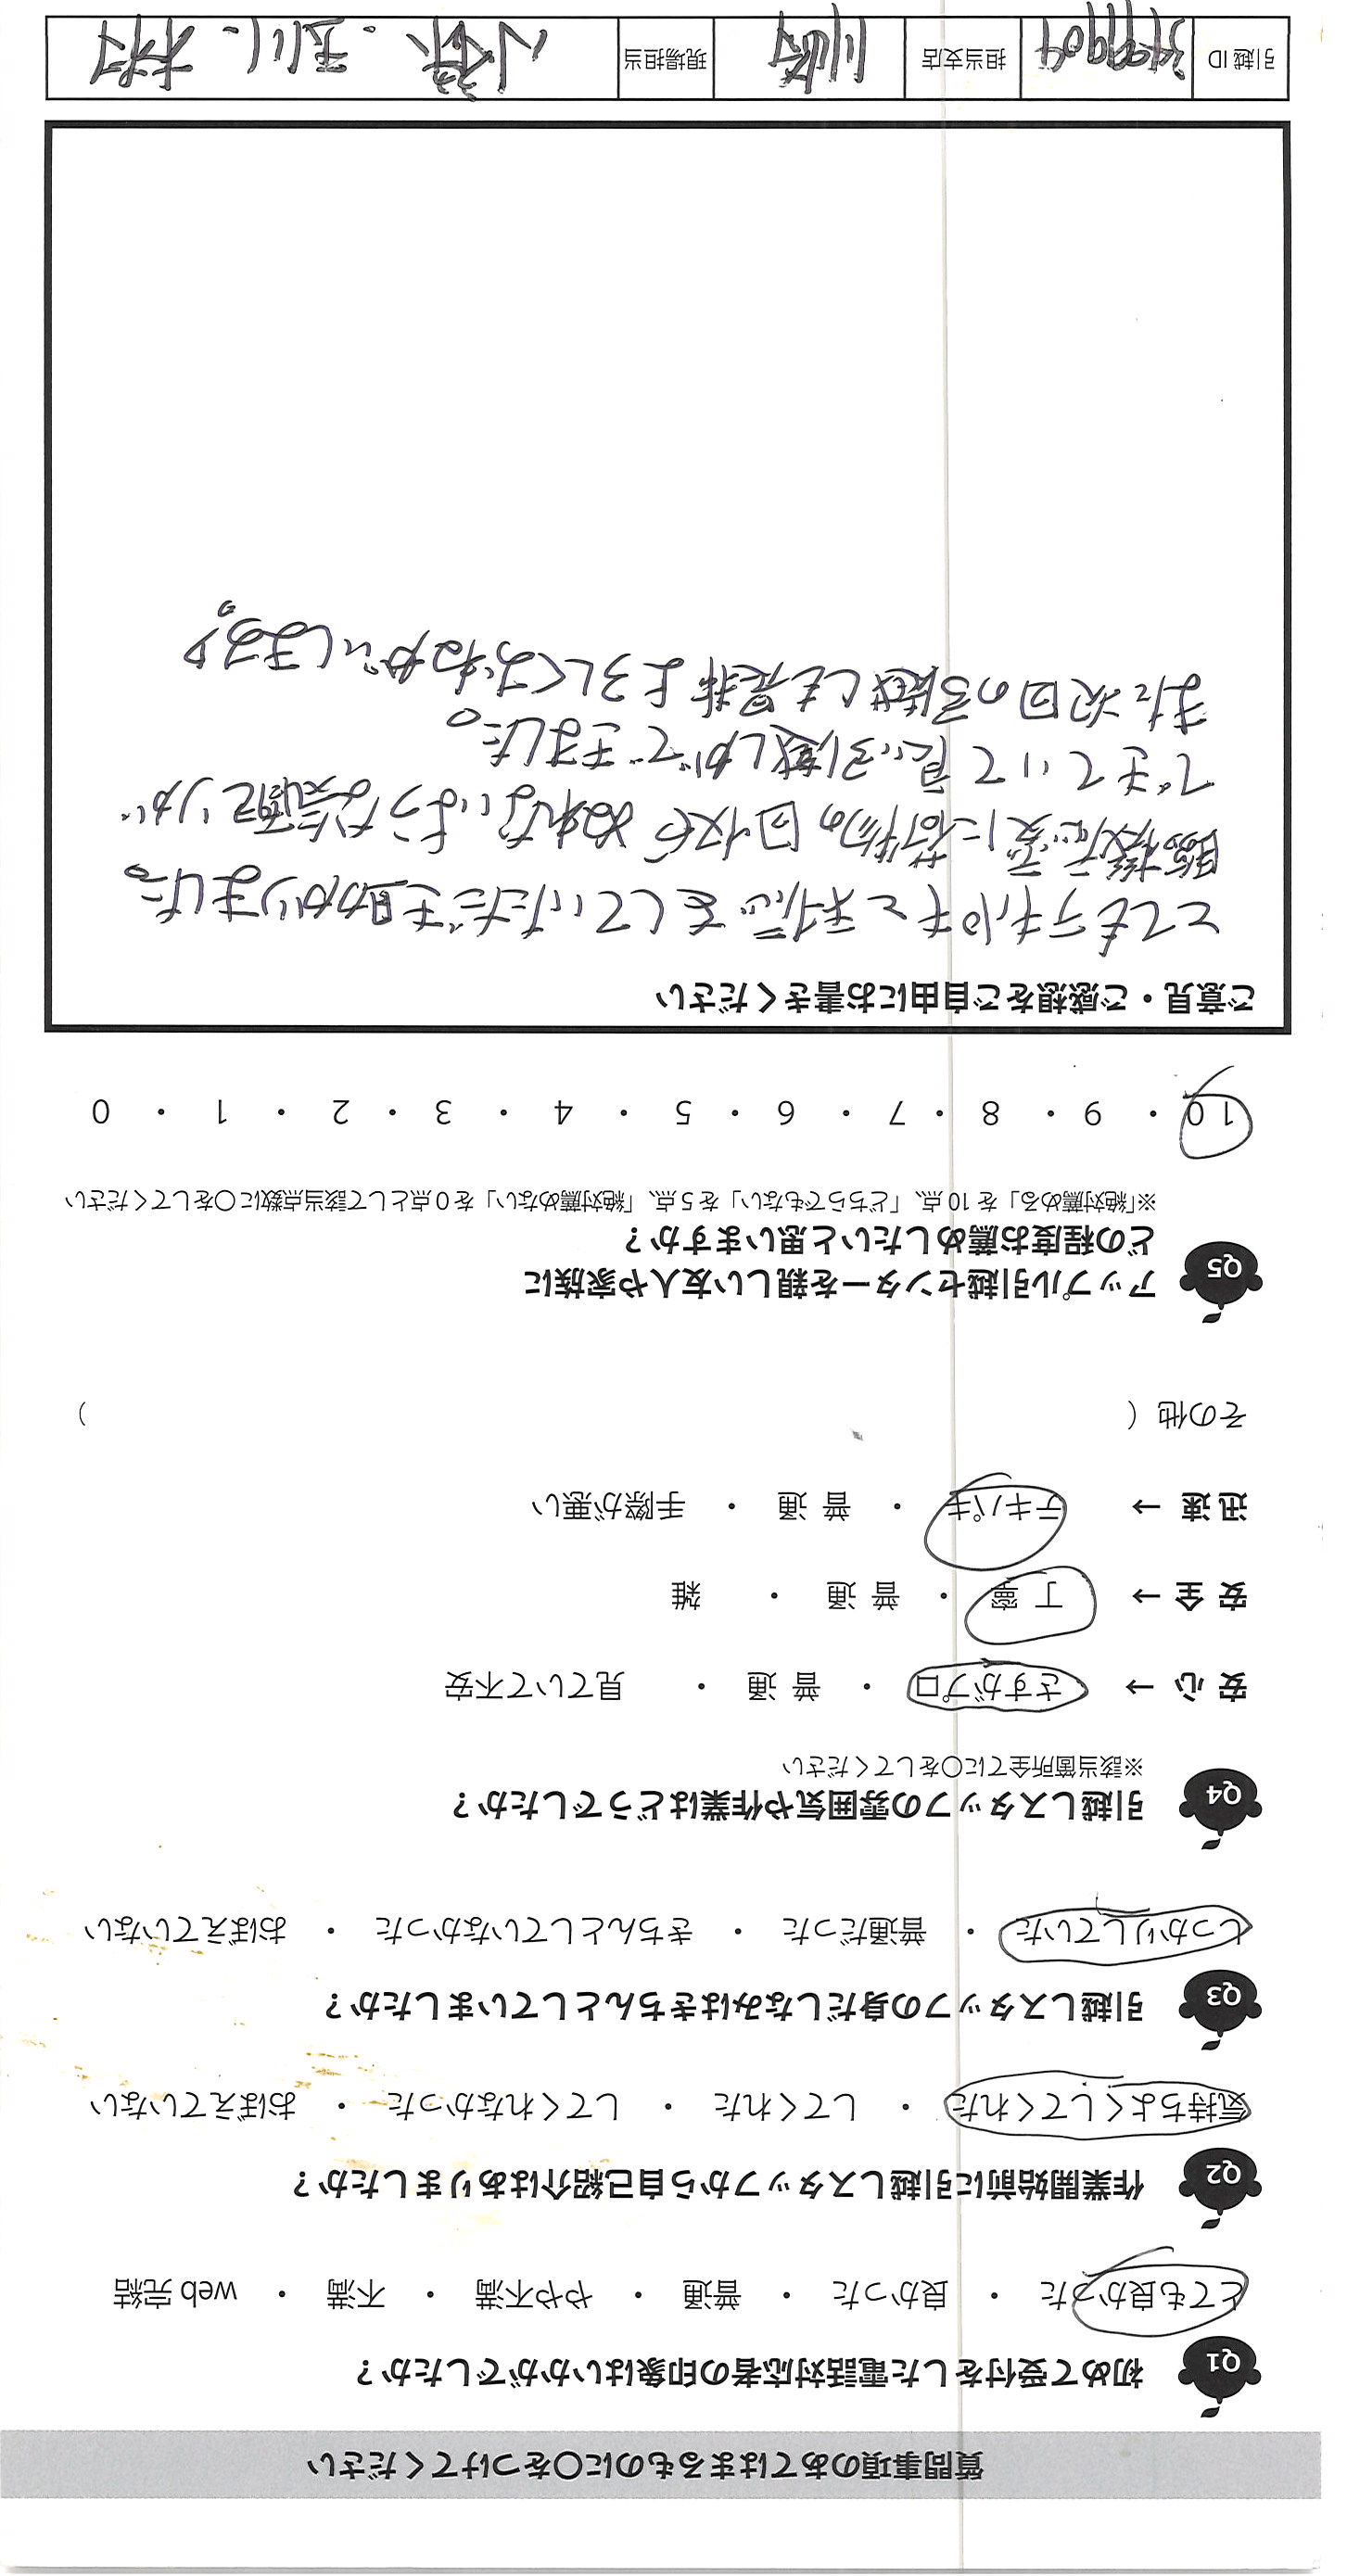 質問事項のあてはまるものに〇をつけてください
Q1 初めて受付をした電話対応者の印象はいかがでしたか？
とても良かった ・ 良かった ・ 普通 ・ やや不満 ・ 不満 ・ web 完結
Q2 作業開始前に引越しスタッフから自己紹介はありましたか？
気持ちよくしてくれた ・ してくれた ・ してくれなかった ・ おぼえていない
Q3 引越しスタッフの身だしなみはきちんとしていましたか？
しっかりしていた ・ 普通だった ・ きちんとしていなかった ・ おぼえていない
Q4 引越しスタッフの雰囲気や作業はどうでしたか？
※該当箇所全てに〇をしてください
安 心 → さすがプロ ・ 普 通 ・ 見ていて不安
安 全 → 丁 寧 ・ 普 通 ・ 雑
迅 速 → テキパキ ・ 普 通 ・ 手際が悪い
その他（ ）
Q5 アップル引越センターを親しい友人や家族に
どの程度お薦めしたいと思いますか？
※「絶対薦める」を 10 点、「どちらでもない」を 5 点、「絶対薦めない」を 0 点として該当点数に〇をしてください
10 ・ 9 ・ 8 ・ 7 ・ 6 ・ 5 ・ 4 ・ 3 ・ 2 ・ 1 ・ 0
ご意見・ご感想をご自由にお書きください
とてもテキパキと対応をしていただき助かりました。
臨機応変に荷物の回収や ぬれないような気配りが
できていて 良い引越しができました。
また次回の引越しも是非よろしくおねがいします。
引越 ID 担当支店 川崎 現場担当 小森・玉川・木村